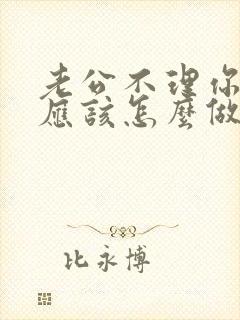 老公不理你
應該怎麼做
比永博